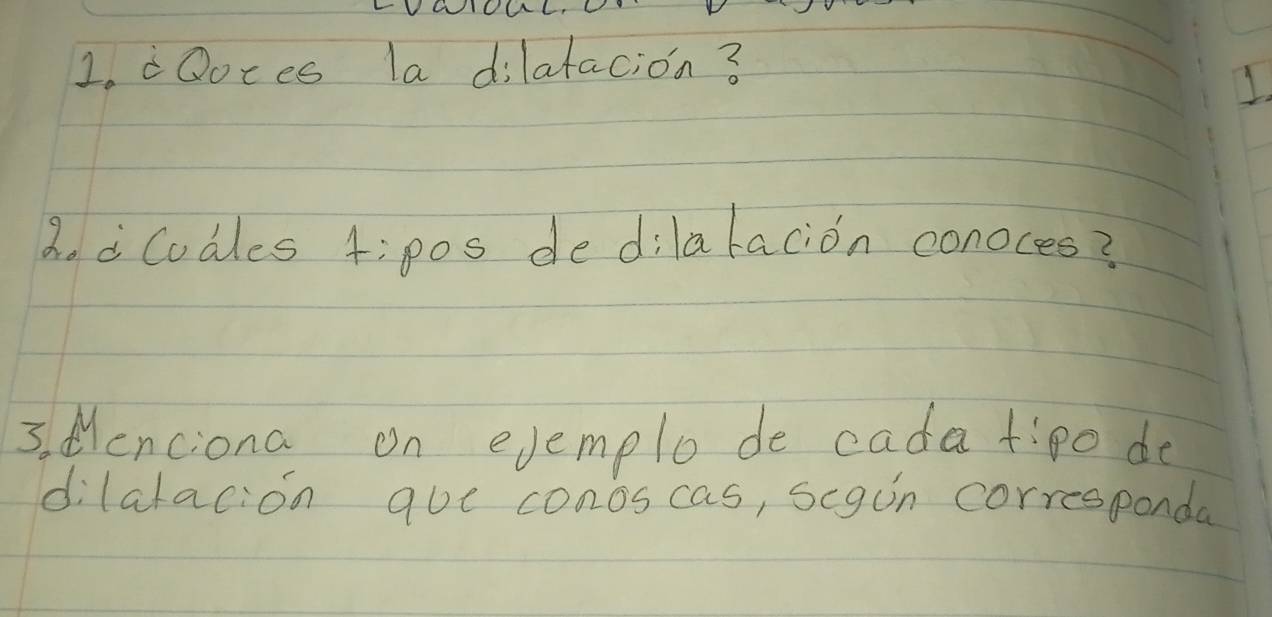 1. ¿Que es la dilatación?
2. ¿Cuáles tipos de dilatación conoces?
3. Menciona un ejemplo de cada tipo de
dilatación que conoscas, según corresponda
1.